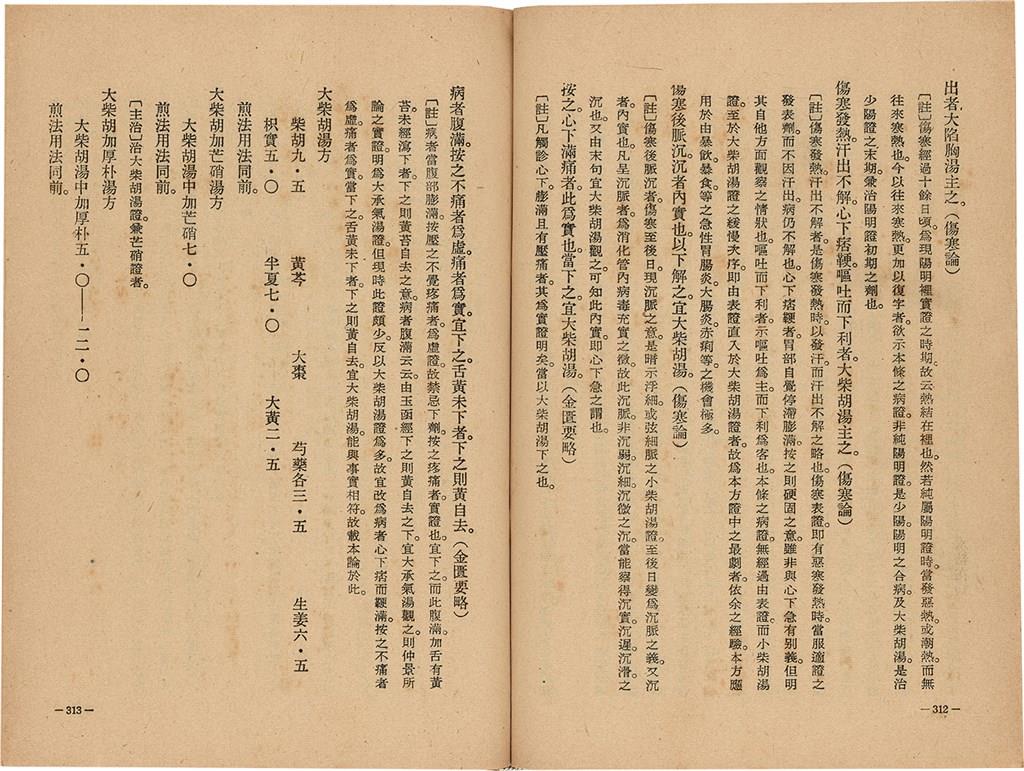 出者。大陷胸湯主之。（傷寒論）
〔註〕傷寒經過十餘日頃。爲現陽明裡實證之時期。故云熱結在裡也。然若純屬陽明證時。當發惡熱。或潮熱。而無
往來寒熱也。今以往來寒熱。更加以復字者。欲示本條之病證。非純陽明證。是少陽陽明之合病。及大柴胡湯。是治
少陽證之末期。兼治陽明證初期之劑也。
傷寒發熱。汗出不解。心下痞鞕。嘔吐而下利者。大柴胡湯主之。（傷寒論）
〔註〕傷寒發熱。汗出不解者。是傷寒發熱時。以發汗而汗出不解之略也。傷寒表證。即有惡寒發熱時。當服適證之
發表劑。而不因汗出。病仍不解也。心下痞鞕者。胃部自覺停滯膨滿。按之則硬固之意。雖非與心下急有別義。但明
其自他方面觀察之情狀也。嘔吐而下利者。示嘔吐爲主。而下利爲客也。本條之病證。無經過由表證。而小柴胡湯
證。至於大柴胡湯證之緩慢次序。即由表證直入於大柴胡湯證者。故爲本方證中之最劇者。依余之經驗。本方應
用於由暴飲。暴食等之急性胃腸炎。大腸炎。赤痢等之機會極多。
傷寒後。脈沉沉者。內實也。以下解之。宜大柴胡湯。（傷寒論）
〔註〕傷寒後脈沉者。傷寒至後日現沉脈。之意。是暗示浮細。或弦細脈之小柴胡湯證。至後日變爲沉脈之義。又沉
者。內實也。凡呈沉脈者。爲消化管內病毒充實之徵。故此沉脈。非沉弱沉細沉微之沉。當能察得沉實。沉遲。沉滑之
沉也。又由末句宜大柴胡湯觀之。可知此內實。即心下急之謂也。
按之。心下滿痛者。此爲實也。當下之。宜大柴胡湯。（金匱要略）
〔註〕凡觸診心下膨滿。且有壓痛者。其爲實證明矣。當以大柴胡湯下之也。
—312—
病者腹滿。按之不痛者爲虛。痛者爲實。宜下之。舌黃未下者。下之則黃自去。（金匱要略）
〔註〕病者當腹部膨滿。按壓之不覺疼痛者。爲虛證。故禁忌下劑。按之疼痛者。實證也。宜下之。而此腹滿。加舌有黃
苔。未經瀉下者。下之則黃苔自去之意。病者腹滿云云。由玉函經。下之則黃自去之下。宜大承氣湯觀之。則仲景所
論之實證。明爲大承氣湯證。但現時此證頗少。反以大柴胡湯證爲多。故宜改爲病者心下痞而鞕滿。按之不痛者
爲虛。痛者爲實。當下之。舌黃未下者。下之則黃自去。宜大柴胡湯。能與事實相符。故載本論於此。
大柴胡湯方
柴胡九・五　黃芩　大棗　芍藥各三・五　生姜六・五
枳實五・〇　半夏七・〇　大黃二・五
煎法用法同前。
大柴胡加芒硝湯方
大柴胡湯中加芒硝七・〇
煎法用法同前。
〔主治〕治大柴胡湯證。兼芒硝證者。
大柴胡加厚朴湯方
大柴胡湯中加厚朴五・〇——一二・〇
煎法用法同前。
—313—